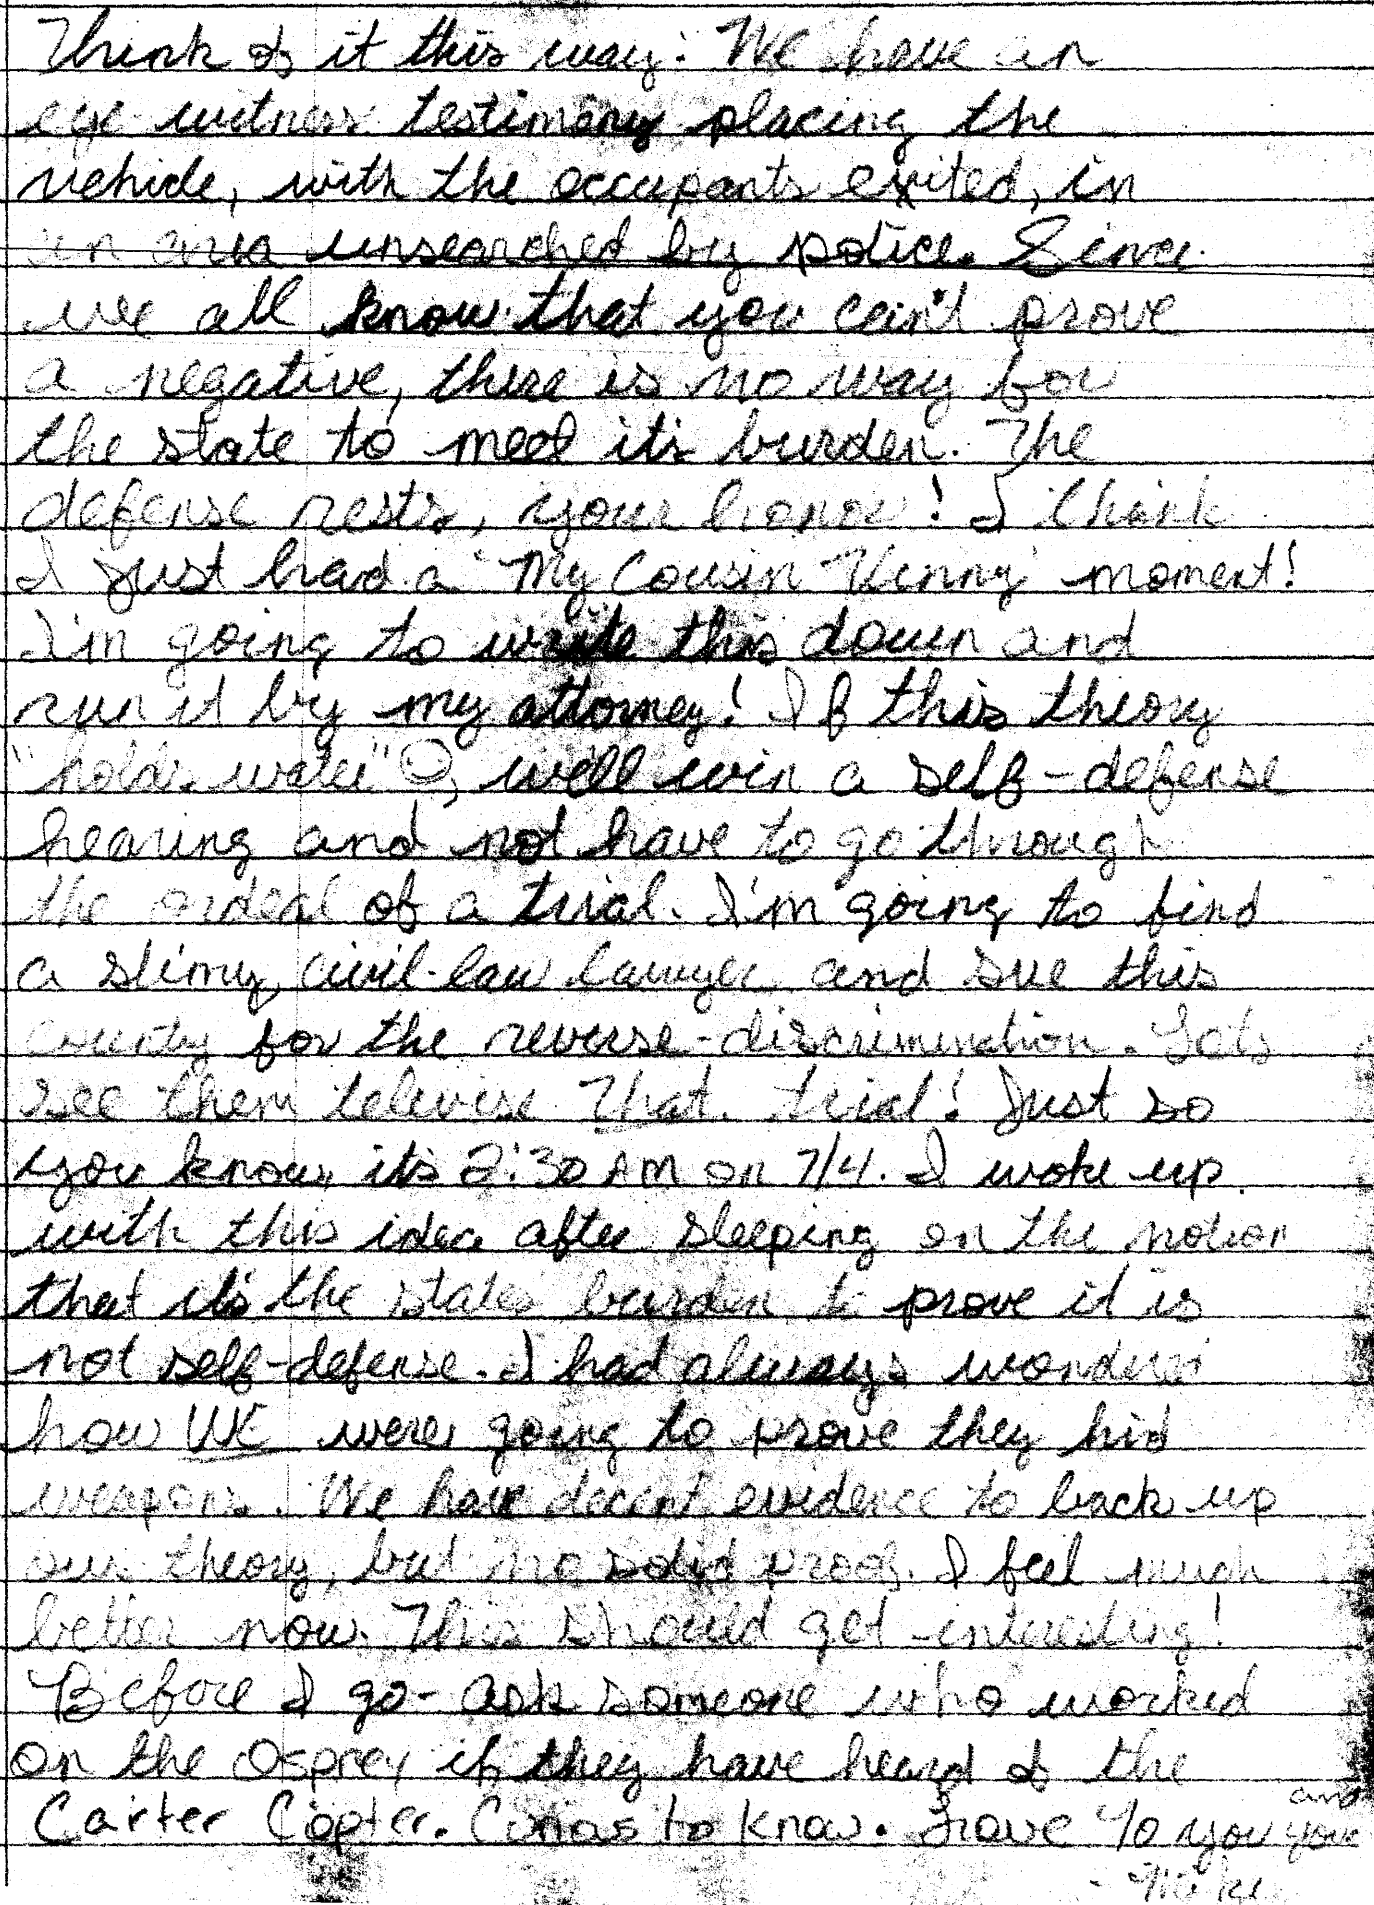 Think of it this way: We have an
eye witness testimony placing the
vehicle, with the occupants exited, in
an area unsearched by police. Since
we all know that you can't prove
a negative, there is no way for
the state to meet its burden. The
defense rests, your honor! I think
I just had a "My Cousin Vinny" moment!
I'm going to write this down and
run it by my attorney! If this theory
"holds water" ☺, we'll win a self-defense
hearing and not have to go through
the ordeal of a trial. I'm going to find
a slimy civil-law lawyer and sue this
county for the reverse-discrimination. Lets
see them televise that trial! Just so
you know, it's 2:30 AM on 7/4. I woke up
with this idea after sleeping on the notion
that it's the states burden to prove it is
not self-defense. I had always wondered
how WE were going to prove they hid
weapons. We have decent evidence to back up
our theory, but no solid proof. I feel much
better now. This should get interesting!
Before I go - ask someone who worked
on the Osprey if they have heard of the
Carter Copter. Curious to know. Love To you and your
- Mike